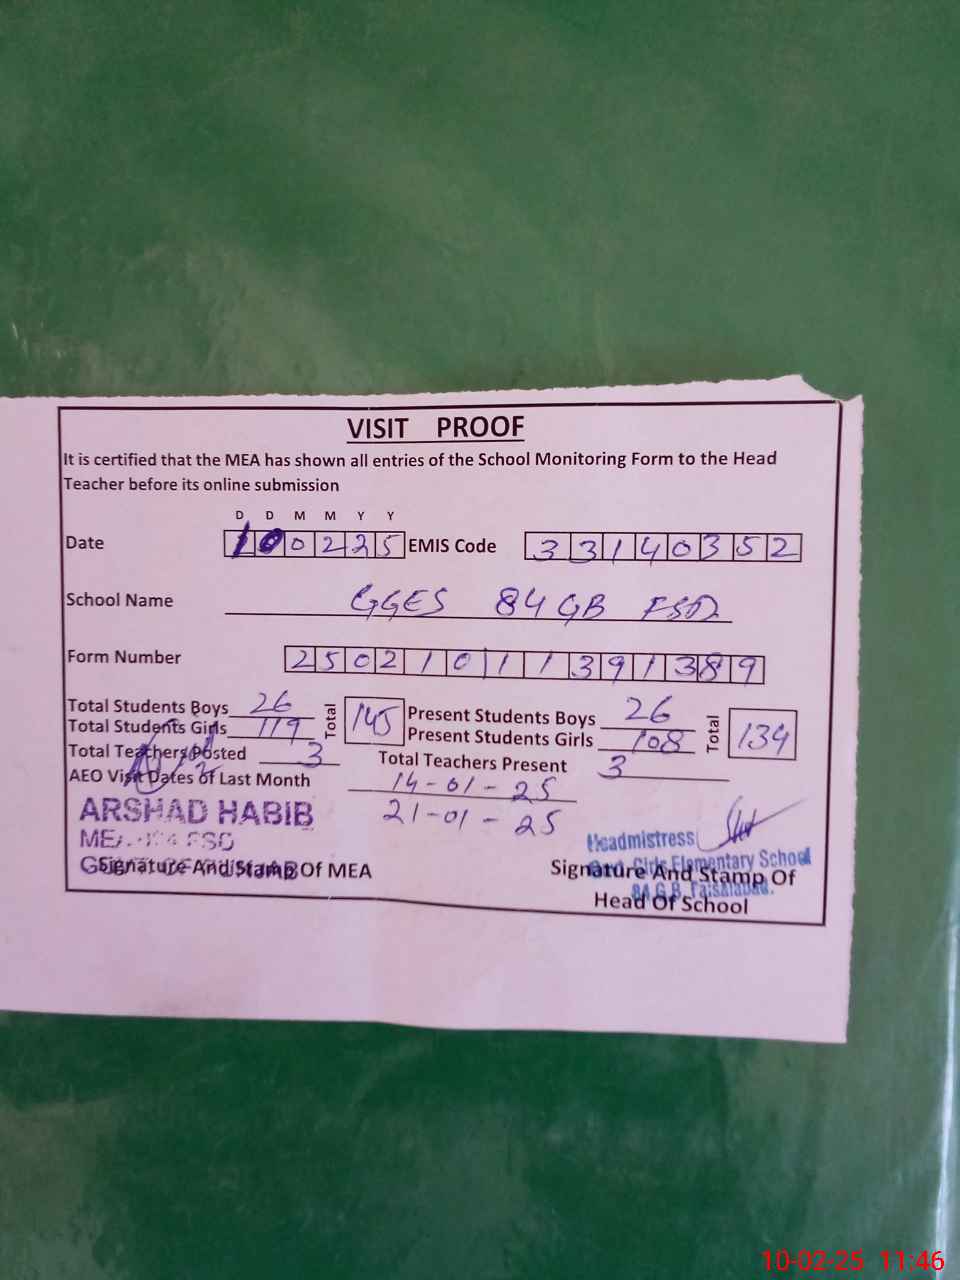 VISIT PROOF
It is certified that the MEA has shown all entries of the School Monitoring Form to the Head
Teacher before its online submission
D D M M Y Y
Date 100225 EMIS Code 33140352
School Name GGES 84 GB FSD
Form Number 25021011391389
Total Students Boys 26 Total 145 Present Students Boys 26 Total 134
Total Students Girls 119 Present Students Girls 108
Total Teachers Posted 3 Total Teachers Present 3
AEO Visit Dates of Last Month 14-01-25
21-01-25
ARSHAD HABIB
Signature And Stamp Of MEA
Headmistress
Govt. Girls Elementary School
84 G.B. Faisalabad.
Signature And Stamp Of
Head Of School
10-02-25 11:46